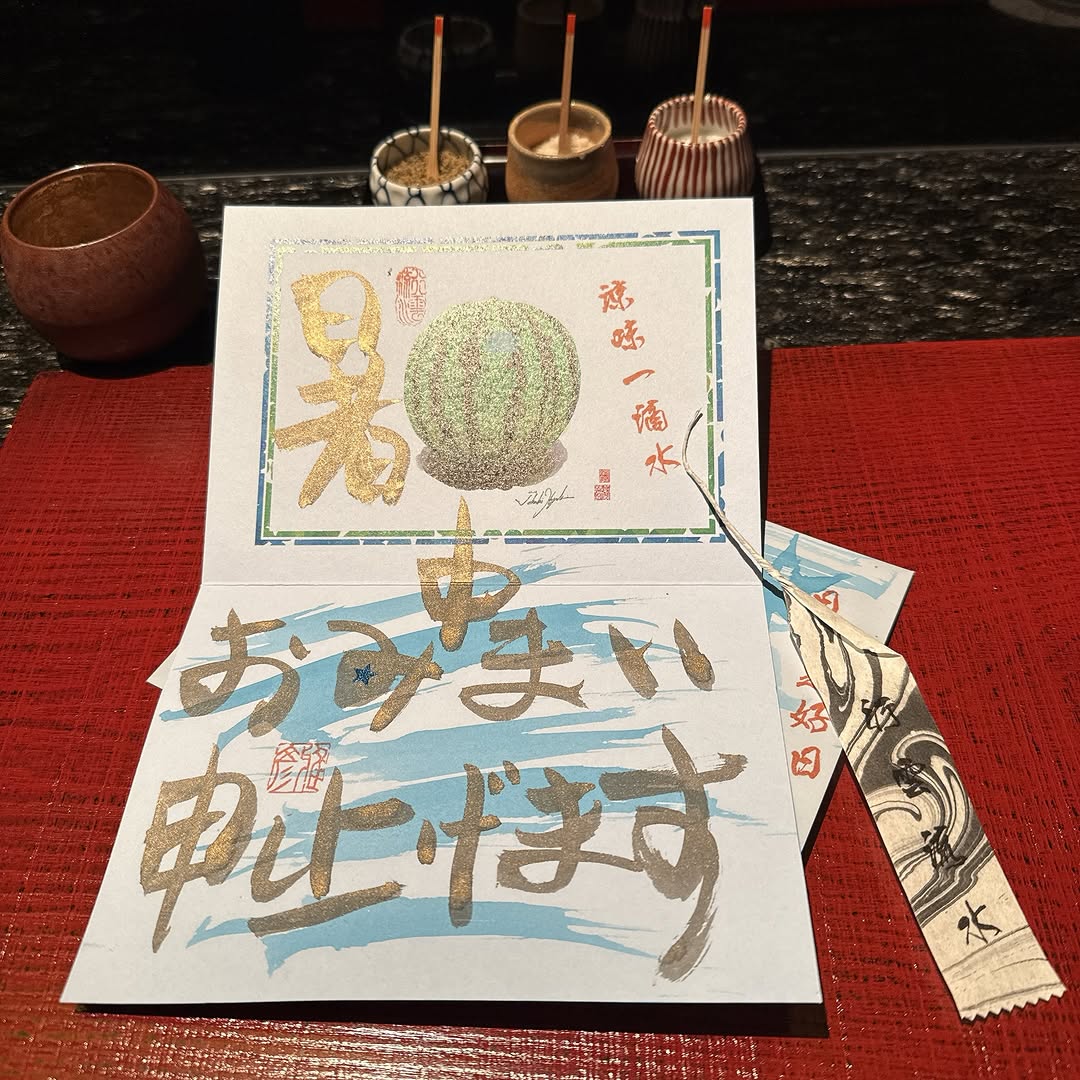 暑中
おみまい
申し上げます
涼味一滴水
好日
行雲流水